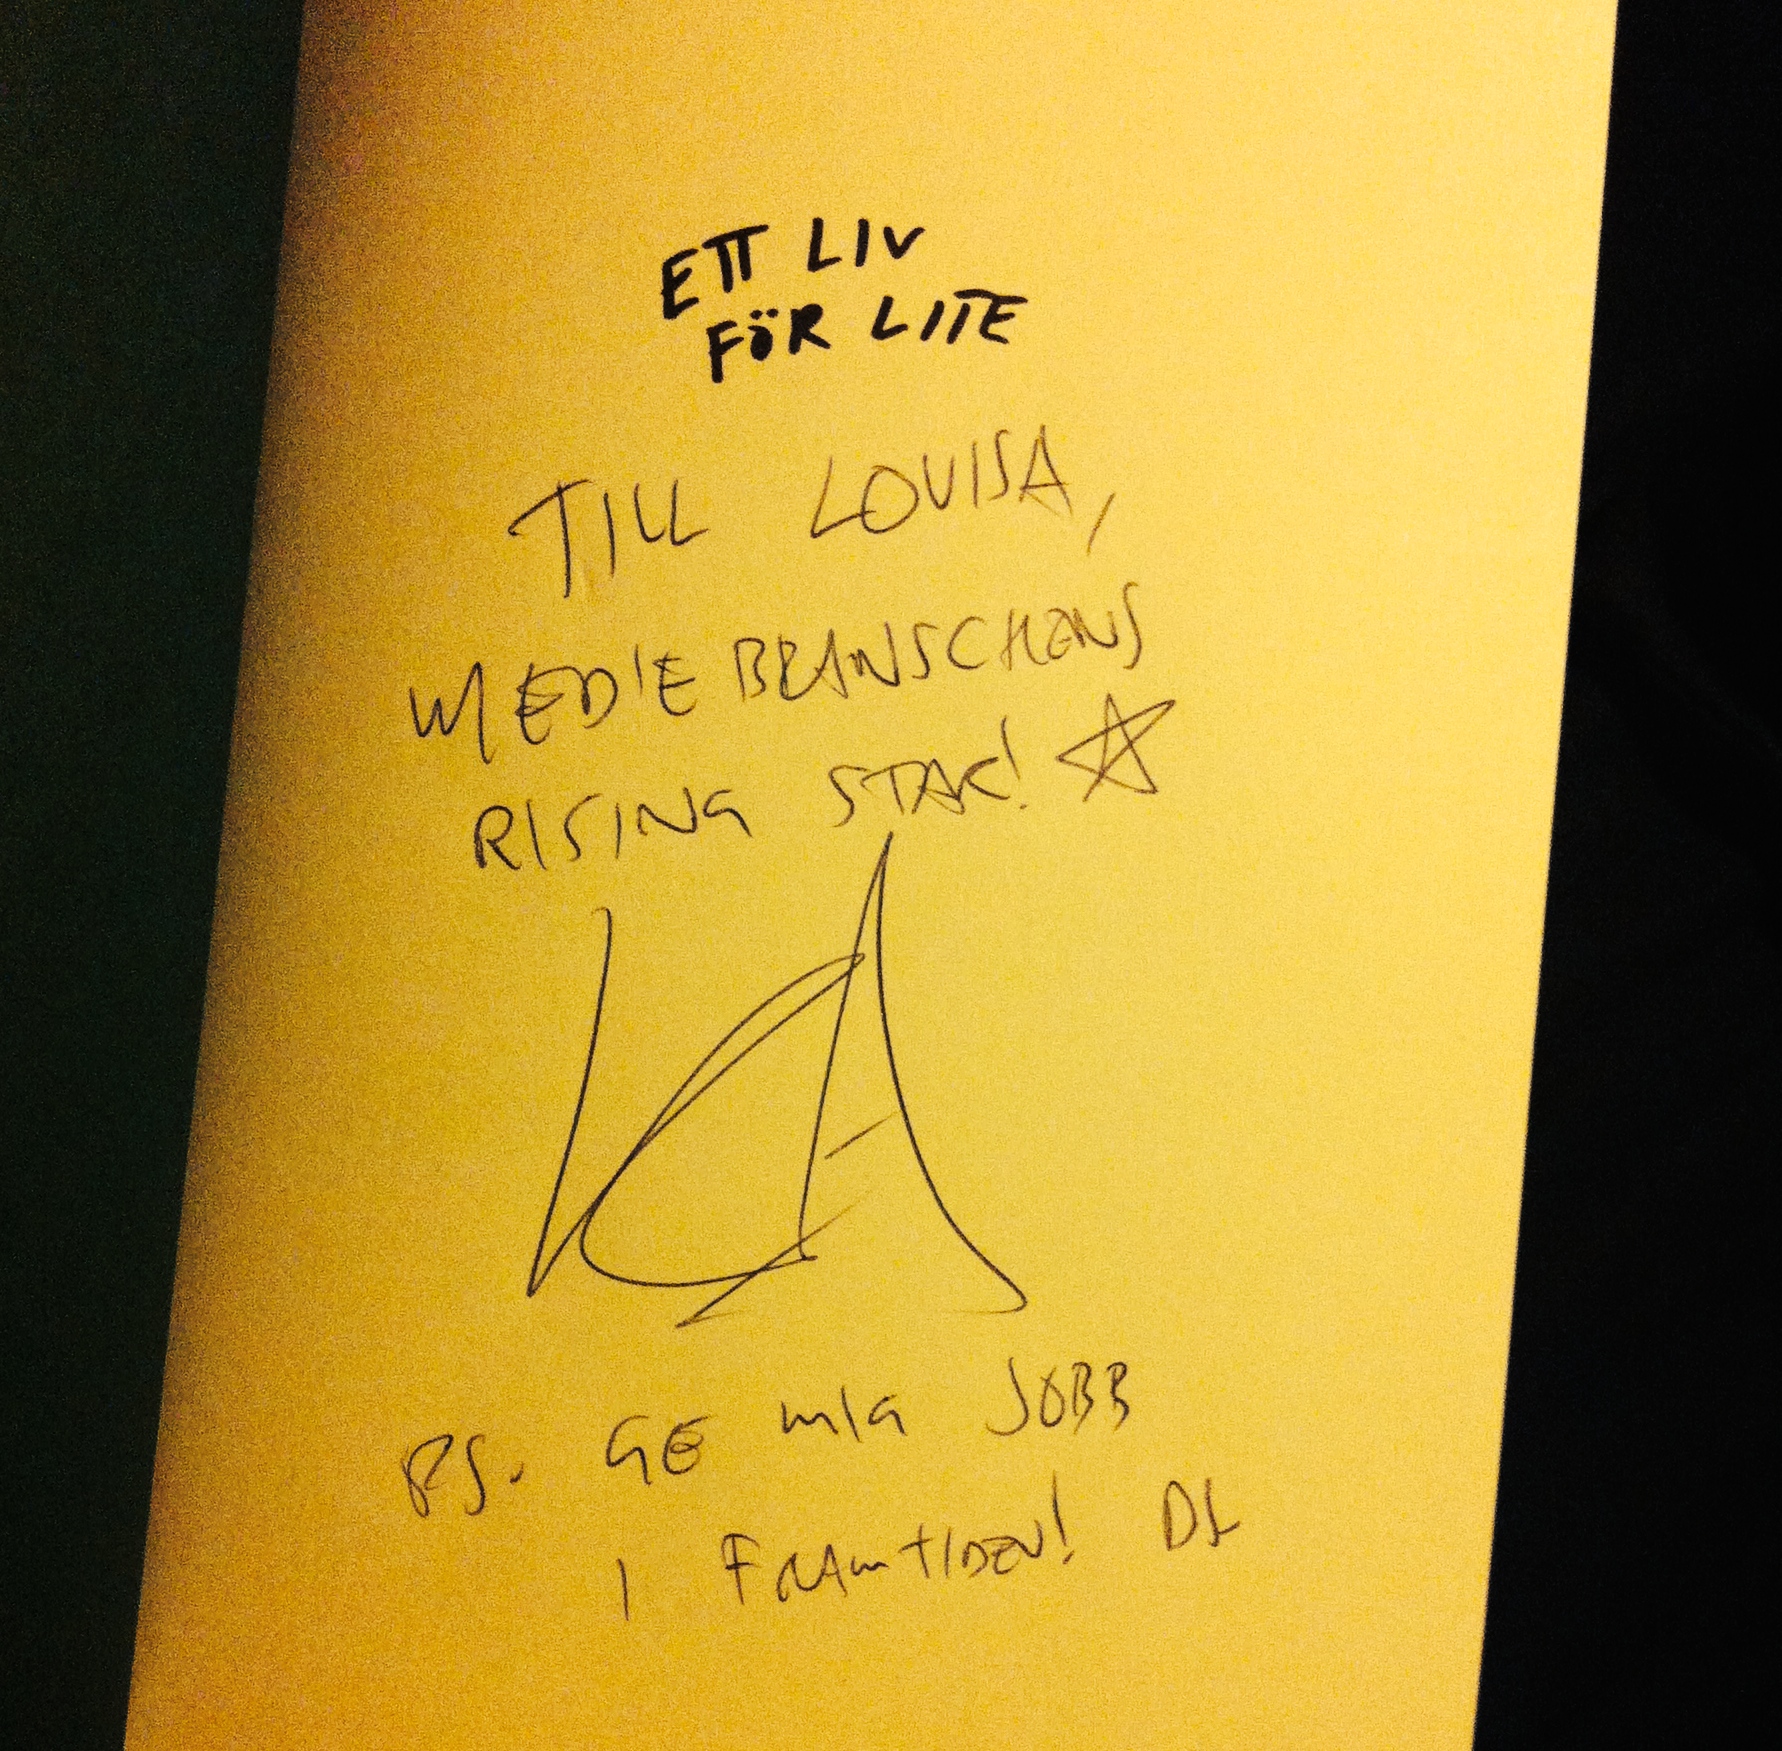 ETT LIV
FÖR LITE
TILL LOUISA,
MEDIEBRANSCHENS
RISING STAR!
PS. GE MIG JOBB
I FRAMTIDEN! DS